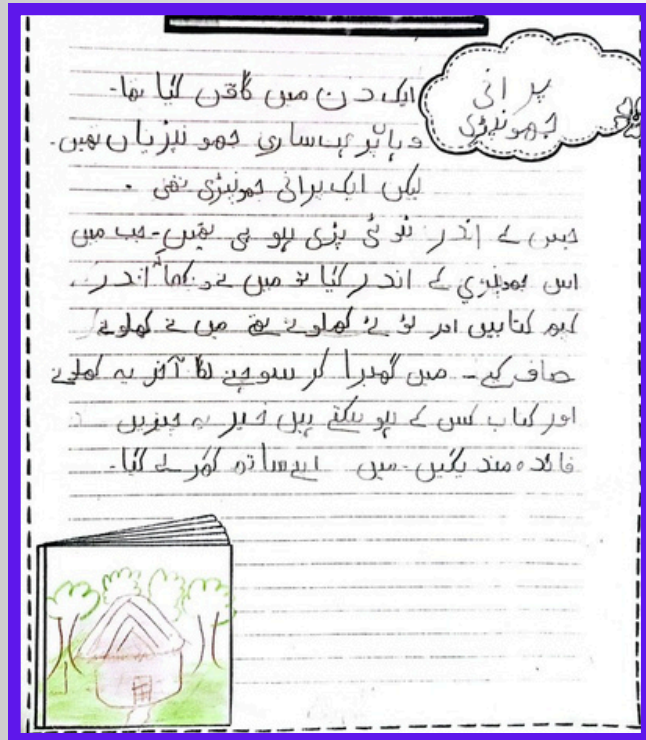 پرانی
جھونپڑی
ایک دن میں گاؤں گیا تھا۔
وہا پر بہت ساری جھونپڑیاں تھیں۔
لیکن ایک پرانی جھونپڑی تھی ۔
جس کے اندر ٹوٹی پڑی ہو ہی تھیں۔ جب میں
اس جھونپڑی کے اندر گیا تو میں نے دیکھا اندر
کچھ کتابیں اور ٹوٹے کھلونے تھے میں نے کھلونے
صاف کیے ۔ میں گھبرا کر سوچنے لگا آخر یہ کھلونے
اور کتاب کس کے ہو سکتے ہیں خیر یہ چیزیں
فائدہ مند میں اپنے ساتھ گھر لے گیا۔